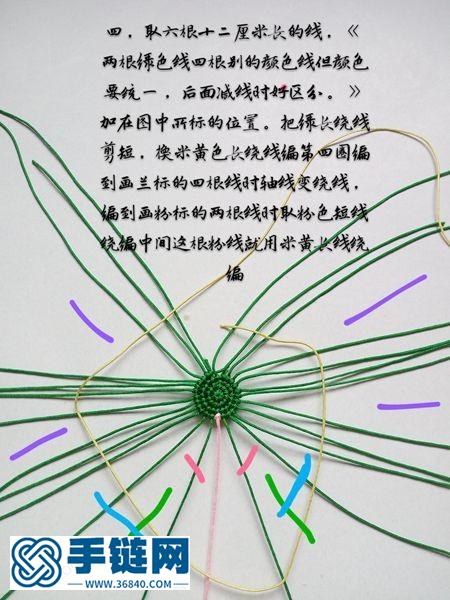 四，取六根十二厘米长的线，《
两根绿色线四根别的颜色线但颜色
要统一，后面减线时好区分。》
加在图中所标的位置。把绿长绕线
剪短，换米黄色长绕线编第四圆编
到画兰标的四根线时轴线变绕线，
编到画粉标的两根线时取粉色短线
绕编中间这根粉线就用米黄长线绕
编
手链网
WWW.36840.COM